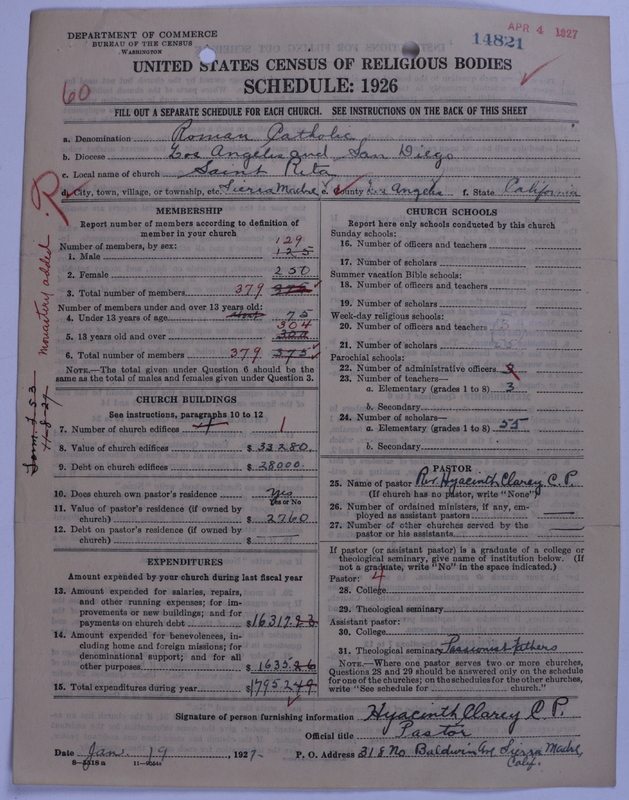 DEPARTMENT OF COMMERCE
BUREAU OF THE CENSUS
WASHINGTON
APR 4 1927
14821
UNITED STATES CENSUS OF RELIGIOUS BODIES
SCHEDULE: 1926
60
FILL OUT A SEPARATE SCHEDULE FOR EACH CHURCH. SEE INSTRUCTIONS ON THE BACK OF THIS SHEET
a. Denomination Roman Catholic
b. Diocese Los Angeles and San Diego
c. Local name of church Saint Rita
d. City, town, village, or township, etc. Sierra Madre e. County Los Angeles f. State California
MEMBERSHIP
Report number of members according to definition of
member in your church
Number of members, by sex:
129
1. Male 125
2. Female 250
3. Total number of members 379 375
Number of members under and over 13 years old:
4. Under 13 years of age 75
304
5. 13 years old and over 300
6. Total number of members 379 375
NOTE.—The total given under Question 6 should be
same as the total of males and females given under Question 3.
monastery added
Form I S 3
4-8-29
CHURCH BUILDINGS
See instructions, paragraphs 10 to 12
7. Number of church edifices 1
8. Value of church edifices $ 33280.
9. Debt on church edifices $ 28000
10. Does church own pastor's residence Yes
Yes or No
11. Value of pastor's residence (if owned by
church) $ 2760
12. Debt on pastor's residence (if owned by
church) $
EXPENDITURES
Amount expended by your church during last fiscal year
13. Amount expended for salaries, repairs,
and other running expenses; for im-
provements or new buildings; and for
payments on church debt $16317.23
14. Amount expended for benevolences, in-
cluding home and foreign missions; for
denominational support; and for all
other purposes $ 1635.26
15. Total expenditures during year $17952.49
CHURCH SCHOOLS
Report here only schools conducted by this church
Sunday schools:
16. Number of officers and teachers
17. Number of scholars
Summer vacation Bible schools:
18. Number of officers and teachers
19. Number of scholars
Week-day religious schools:
20. Number of officers and teachers
21. Number of scholars
Parochial schools:
22. Number of administrative officers
23. Number of teachers—
a. Elementary (grades 1 to 8) 3
b. Secondary
24. Number of scholars—
a. Elementary (grades 1 to 8) 55
b. Secondary
PASTOR
25. Name of pastor Rev. Hyacinth Clarey C. P.
(If church has no pastor, write "None")
26. Number of ordained ministers, if any, em-
ployed as assistant pastors
27. Number of other churches served by the
pastor or his assistants
If pastor (or assistant pastor) is a graduate of a college or
theological seminary, give name of institution below. (If
not a graduate, write "No" in the space indicated.)
Pastor: 4
28. College
29. Theological seminary
Assistant pastor:
30. College
31. Theological seminary Passionist Fathers
NOTE.—Where one pastor serves two or more churches,
Questions 28 and 29 should be answered only on the schedule
for one of the churches; on the schedules for the other churches,
write "See schedule for church."
Signature of person furnishing information Hyacinth Clarey C. P.
Official title Pastor
Date Jan 19 1927- P. O. Address 318 No Baldwin Ave Sierra Madre,
Calif.
8-5518 a